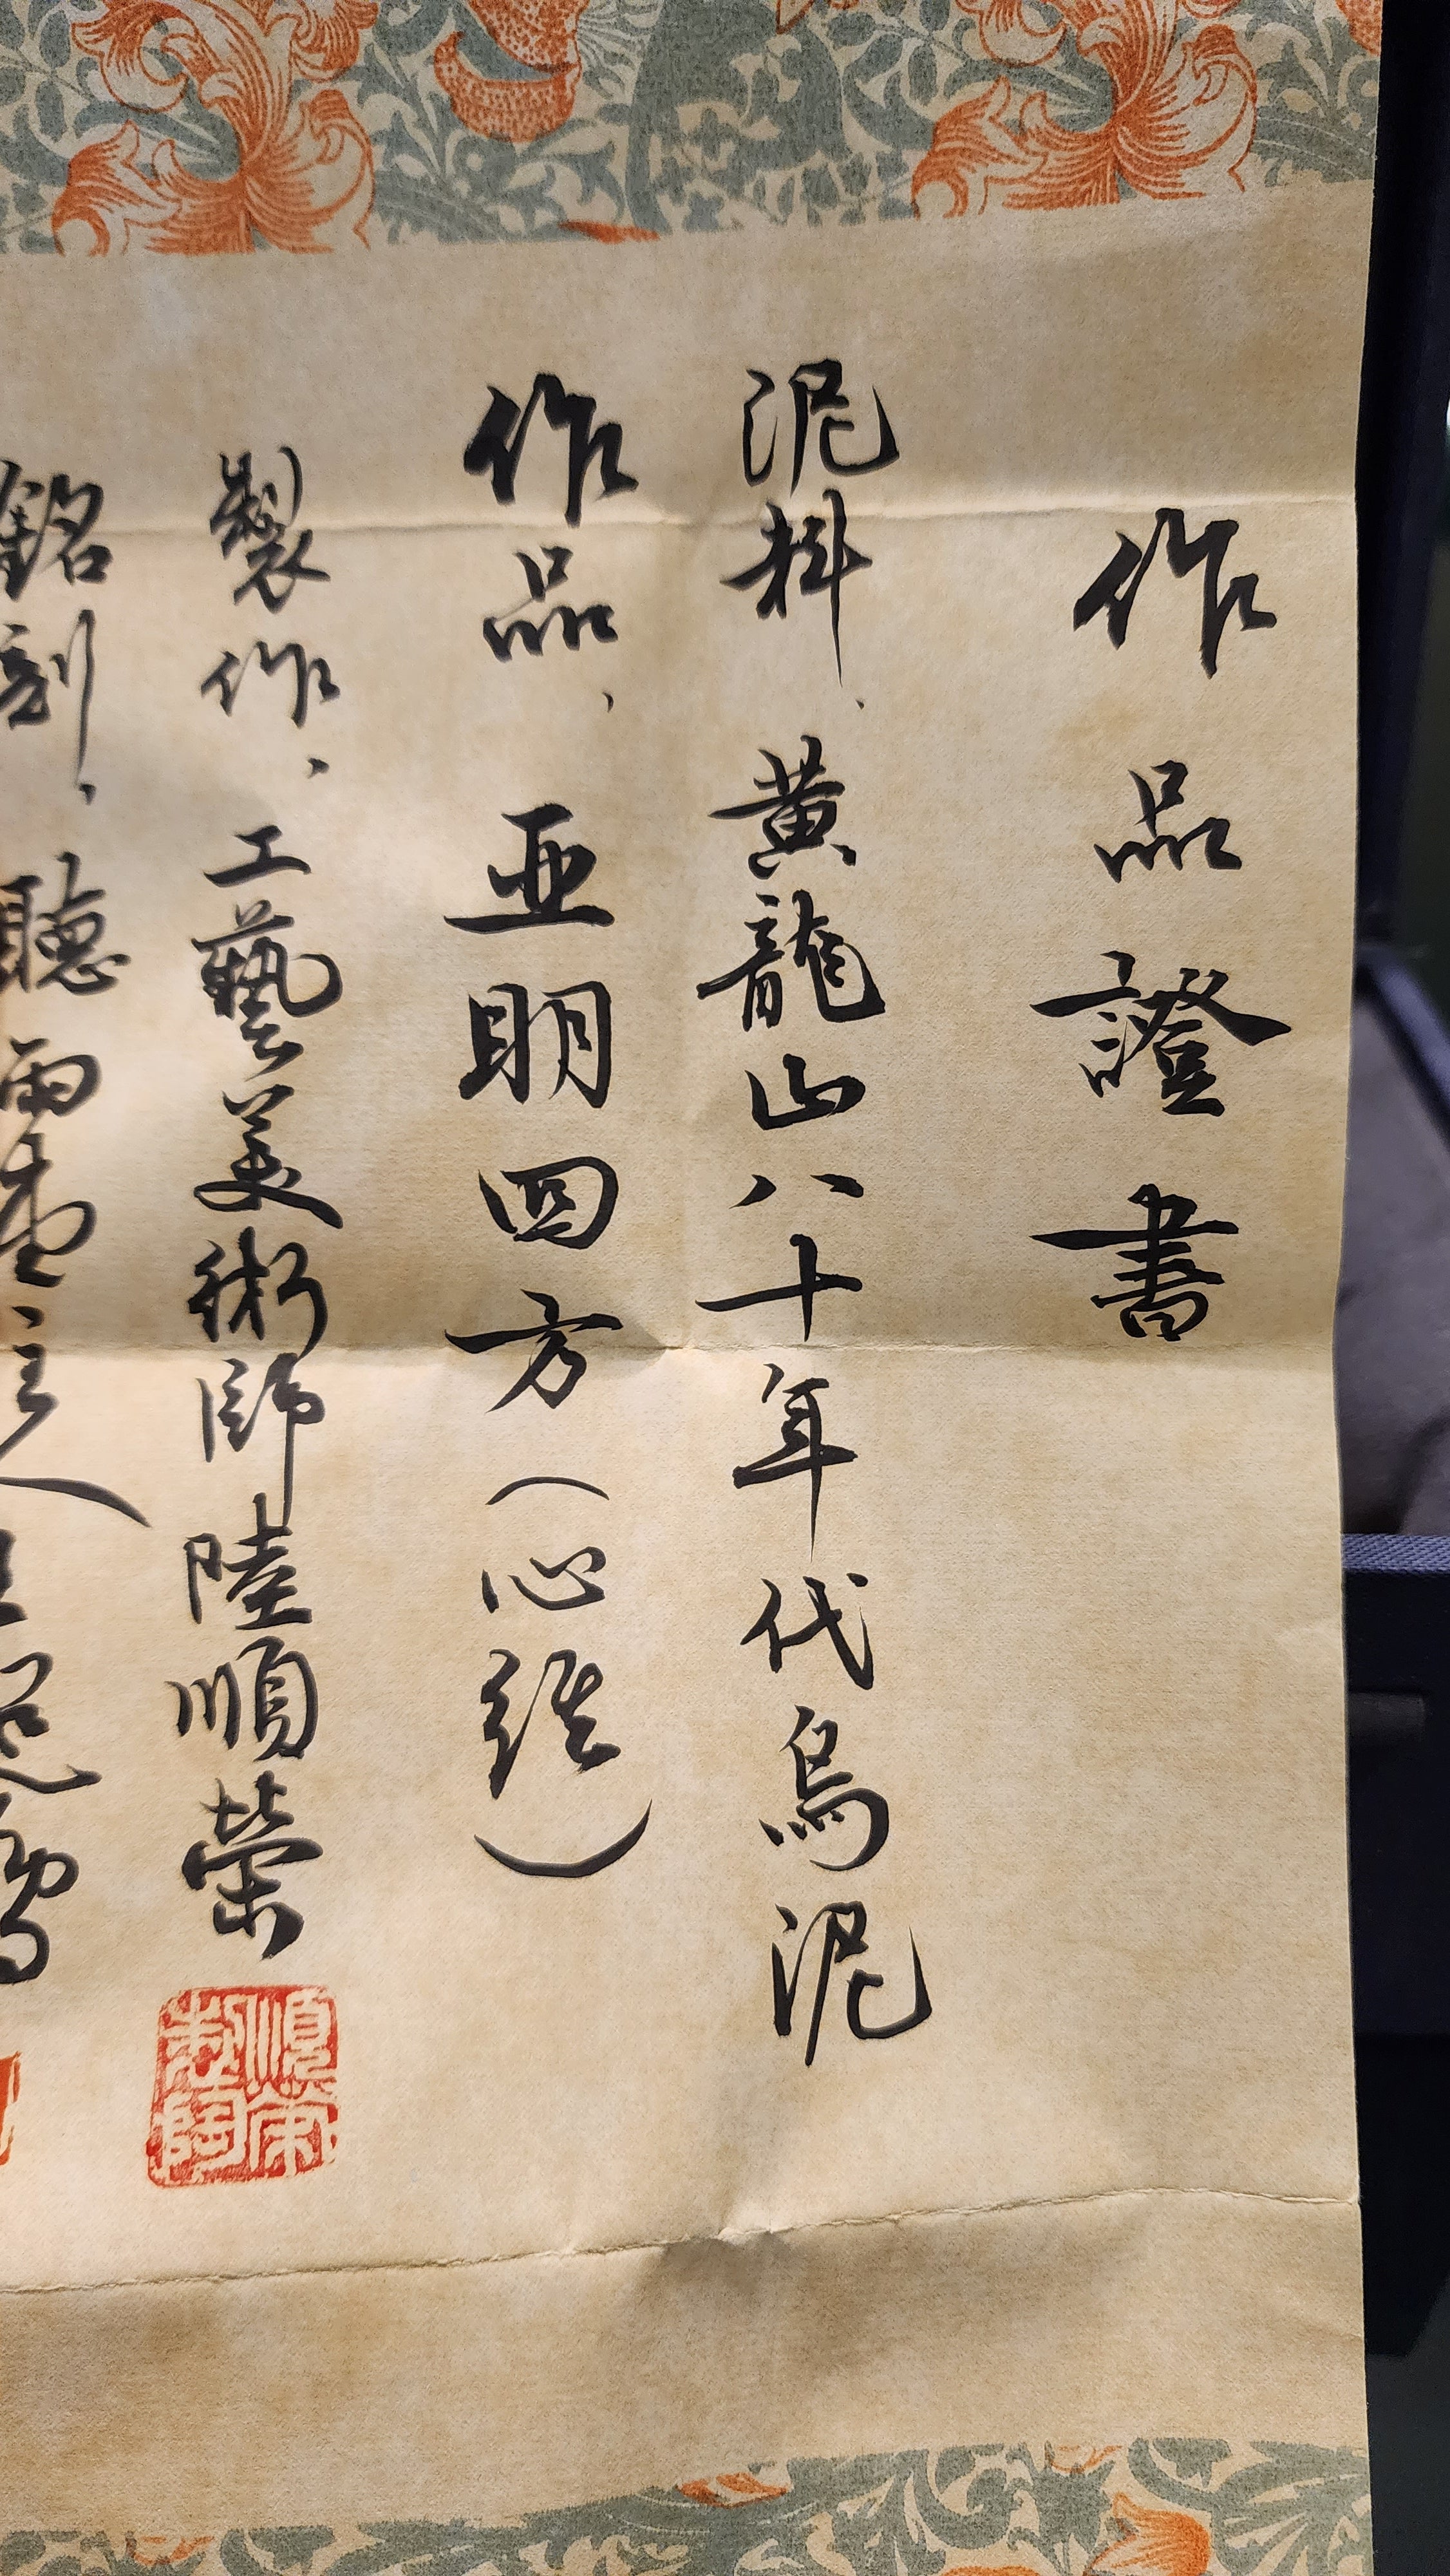 作品證書
泥料、黃龍山八十年代烏泥
作品、亚明四方(心經)
製作、工藝美術師陸順榮
順榮制陶
銘刻、聽雨盧主人